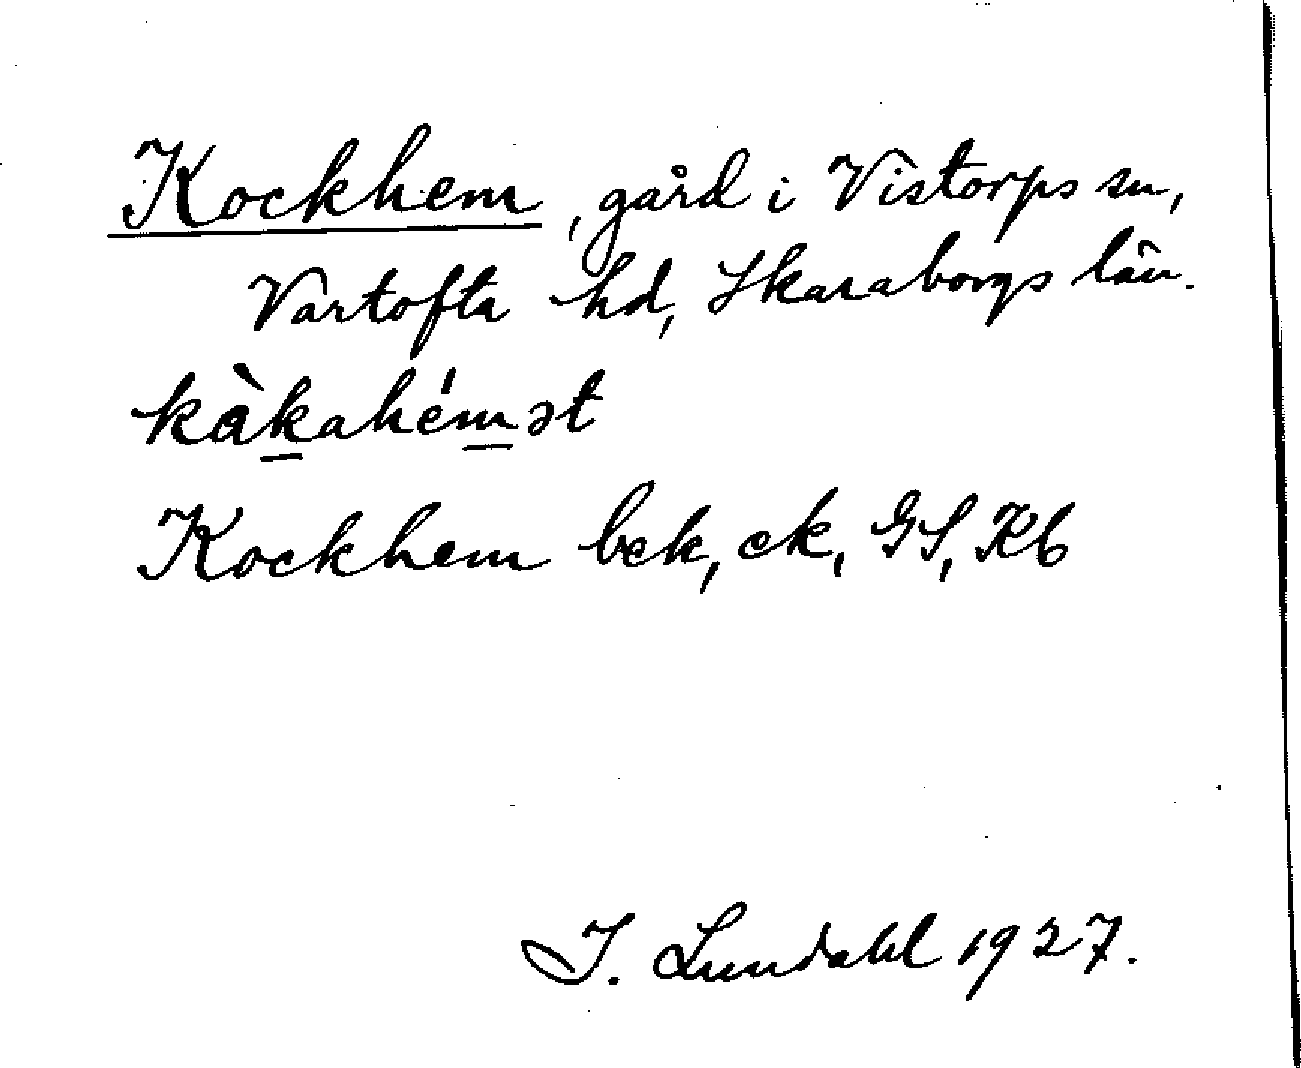 Kockhem, gård i Vistorps sn,
Vartofta hd, Skaraborgs län.
kàkahémət
Kockhem bek, ek, GS, Kb
I. Lundahl 1927.